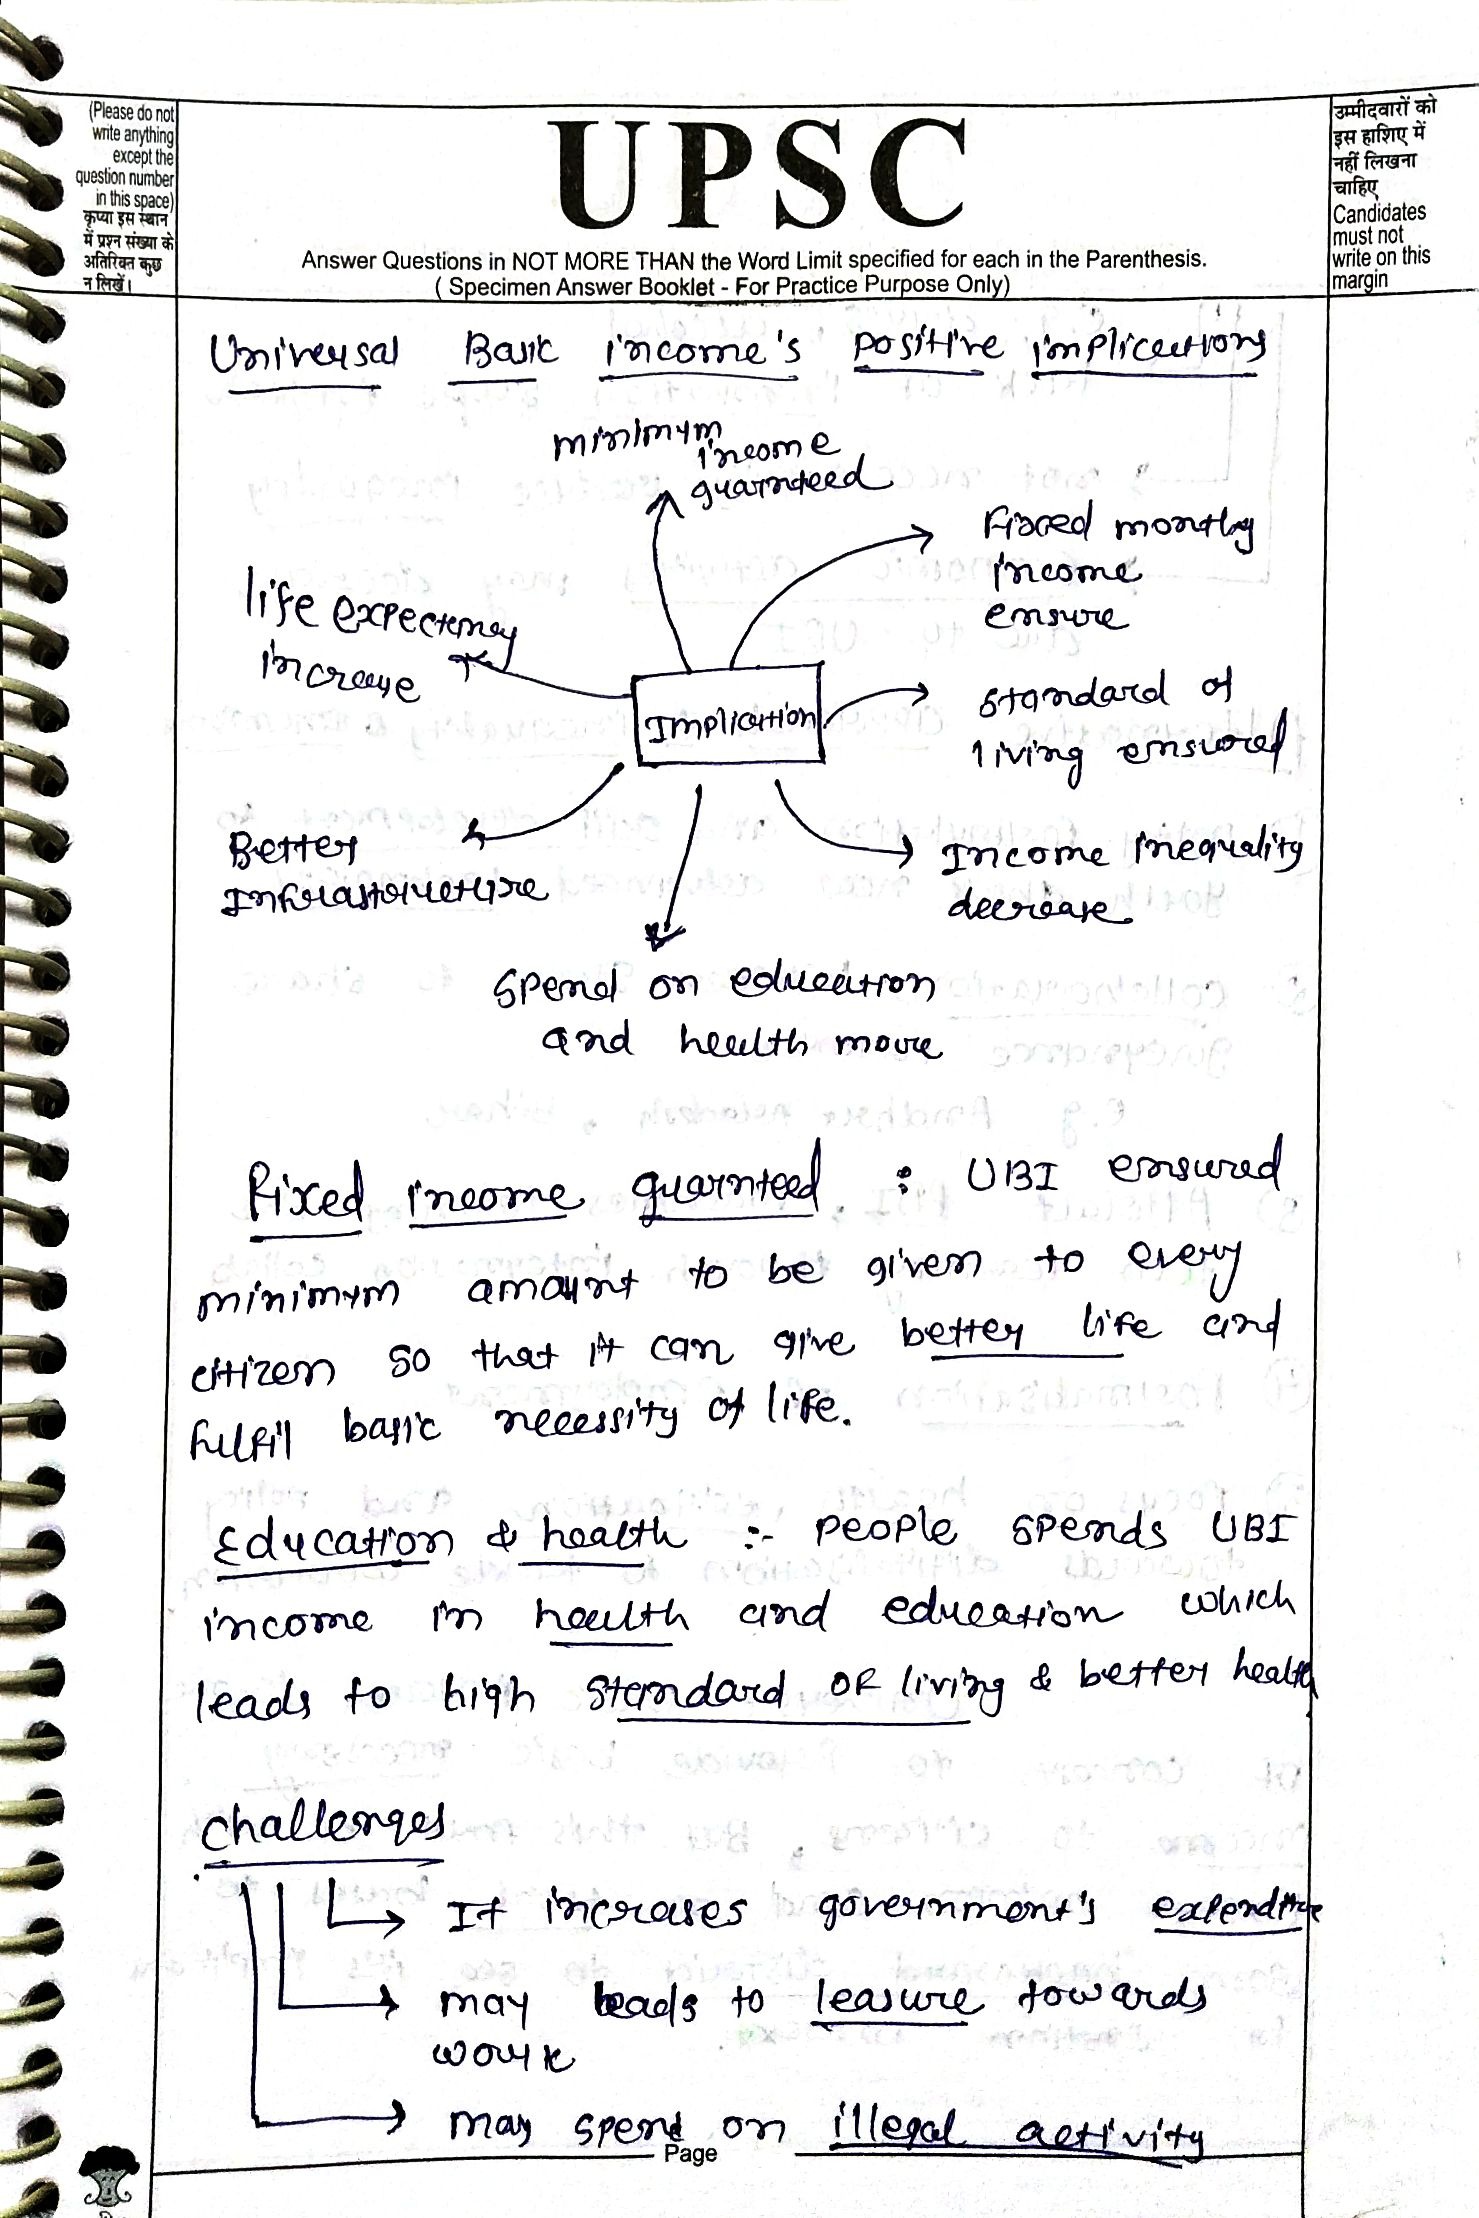 (Please do not
write anything
except the
question number
in this space)
कृप्या इस स्थान
में प्रश्न संख्या के
अतिरिक्त कुछ
न लिखें।
UPSC
Answer Questions in NOT MORE THAN the Word Limit specified for each in the Parenthesis.
( Specimen Answer Booklet - For Practice Purpose Only)
उम्मीदवारों को
इस हाशिए में
नहीं लिखना
चाहिए
Candidates
must not
write on this
margin
Universal Basic income's positive implications
minimum
income
guarnteed
Fixed monthly
income
ensure
life expectency
increase
Implication
standard of
living ensured
Better
Infrastructure
Income inequality
decrease
Spend on education
and health more
Fixed income guarnteed : UBI ensured
minimum amount to be given to every
citizen so that it can give better life and
fulfil basic necessity of life.
Education & health :- people spends UBI
income in health and education which
leads to high standard of living & better health
Challenges
It increases government's expenditure
may leads to leasure towards
work
may spend on illegal activity
Page